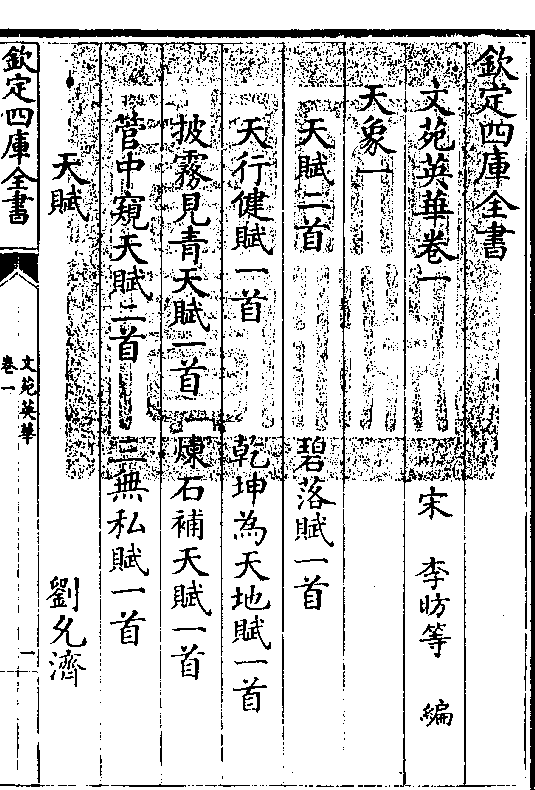 欽定四庫全書
文苑英華卷一
宋 李昉等 編
天象一
天賦二首 碧落賦一首
天行健賦一首 乾坤為天地賦一首
披霧見青天賦一首 煉石補天賦一首
管中窺天賦二首 三無私賦一首
天賦 劉允濟
欽定四庫全書
文苑英華
卷一
一